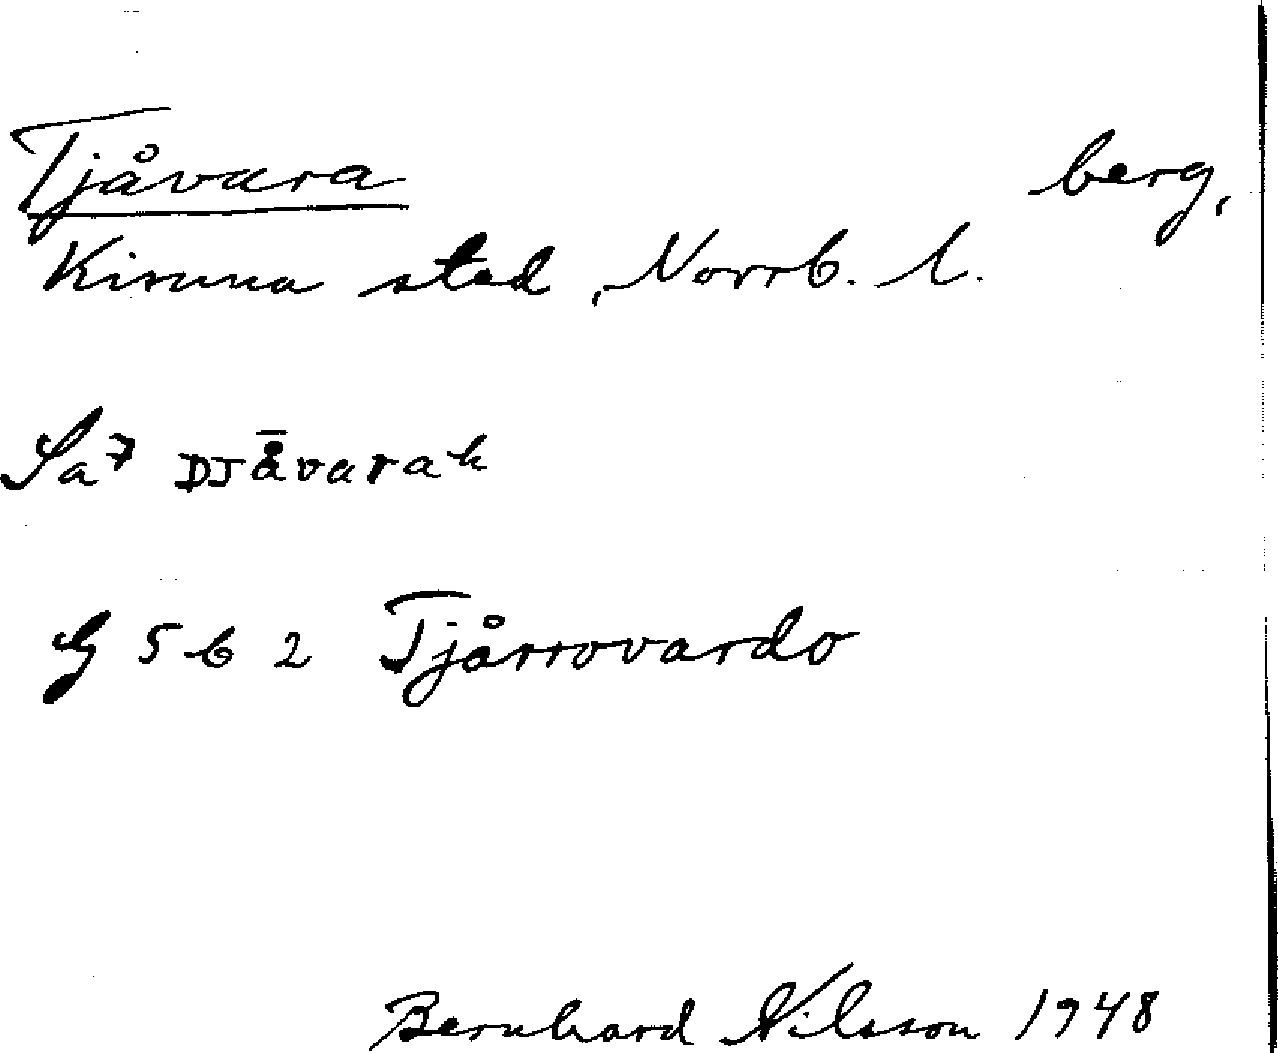 Tjåvara berg,
Kiruna stad, Norrb. l.
Sa 7 DJå̄varak
G 5 b 2 Tjårrovardo
Bernhard Nilsson 1948